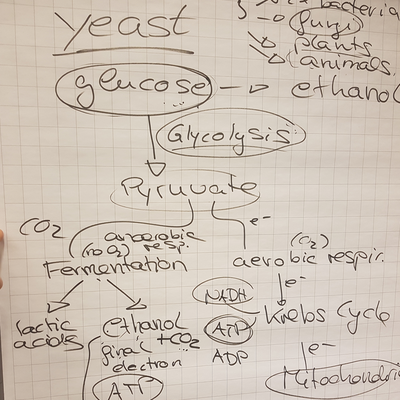 yeast
bacteria
(fungi)
plants
animals.
glucose → ethanol
Glycolysis
Pyruvate
CO2
anaerobic
(no O2) resp.
Fermentation
e-
(O2)
aerobic respir.
e-
NADH
Krebs Cycle
ATP
ADP
e-
Mitochondri
lactic
acids
ethanol
+CO2
final
electron
ATP